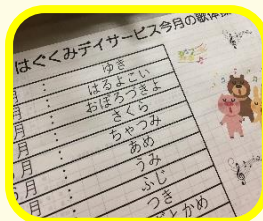 はぐくみデイサービス今月の歌体操
月 : ゆき
月 : はるよこい
月 : おぼろづきよ
月 : さくら
月 : ちゃつみ
月 : あめ
月 : うみ
月 : ふじ
月 : つき